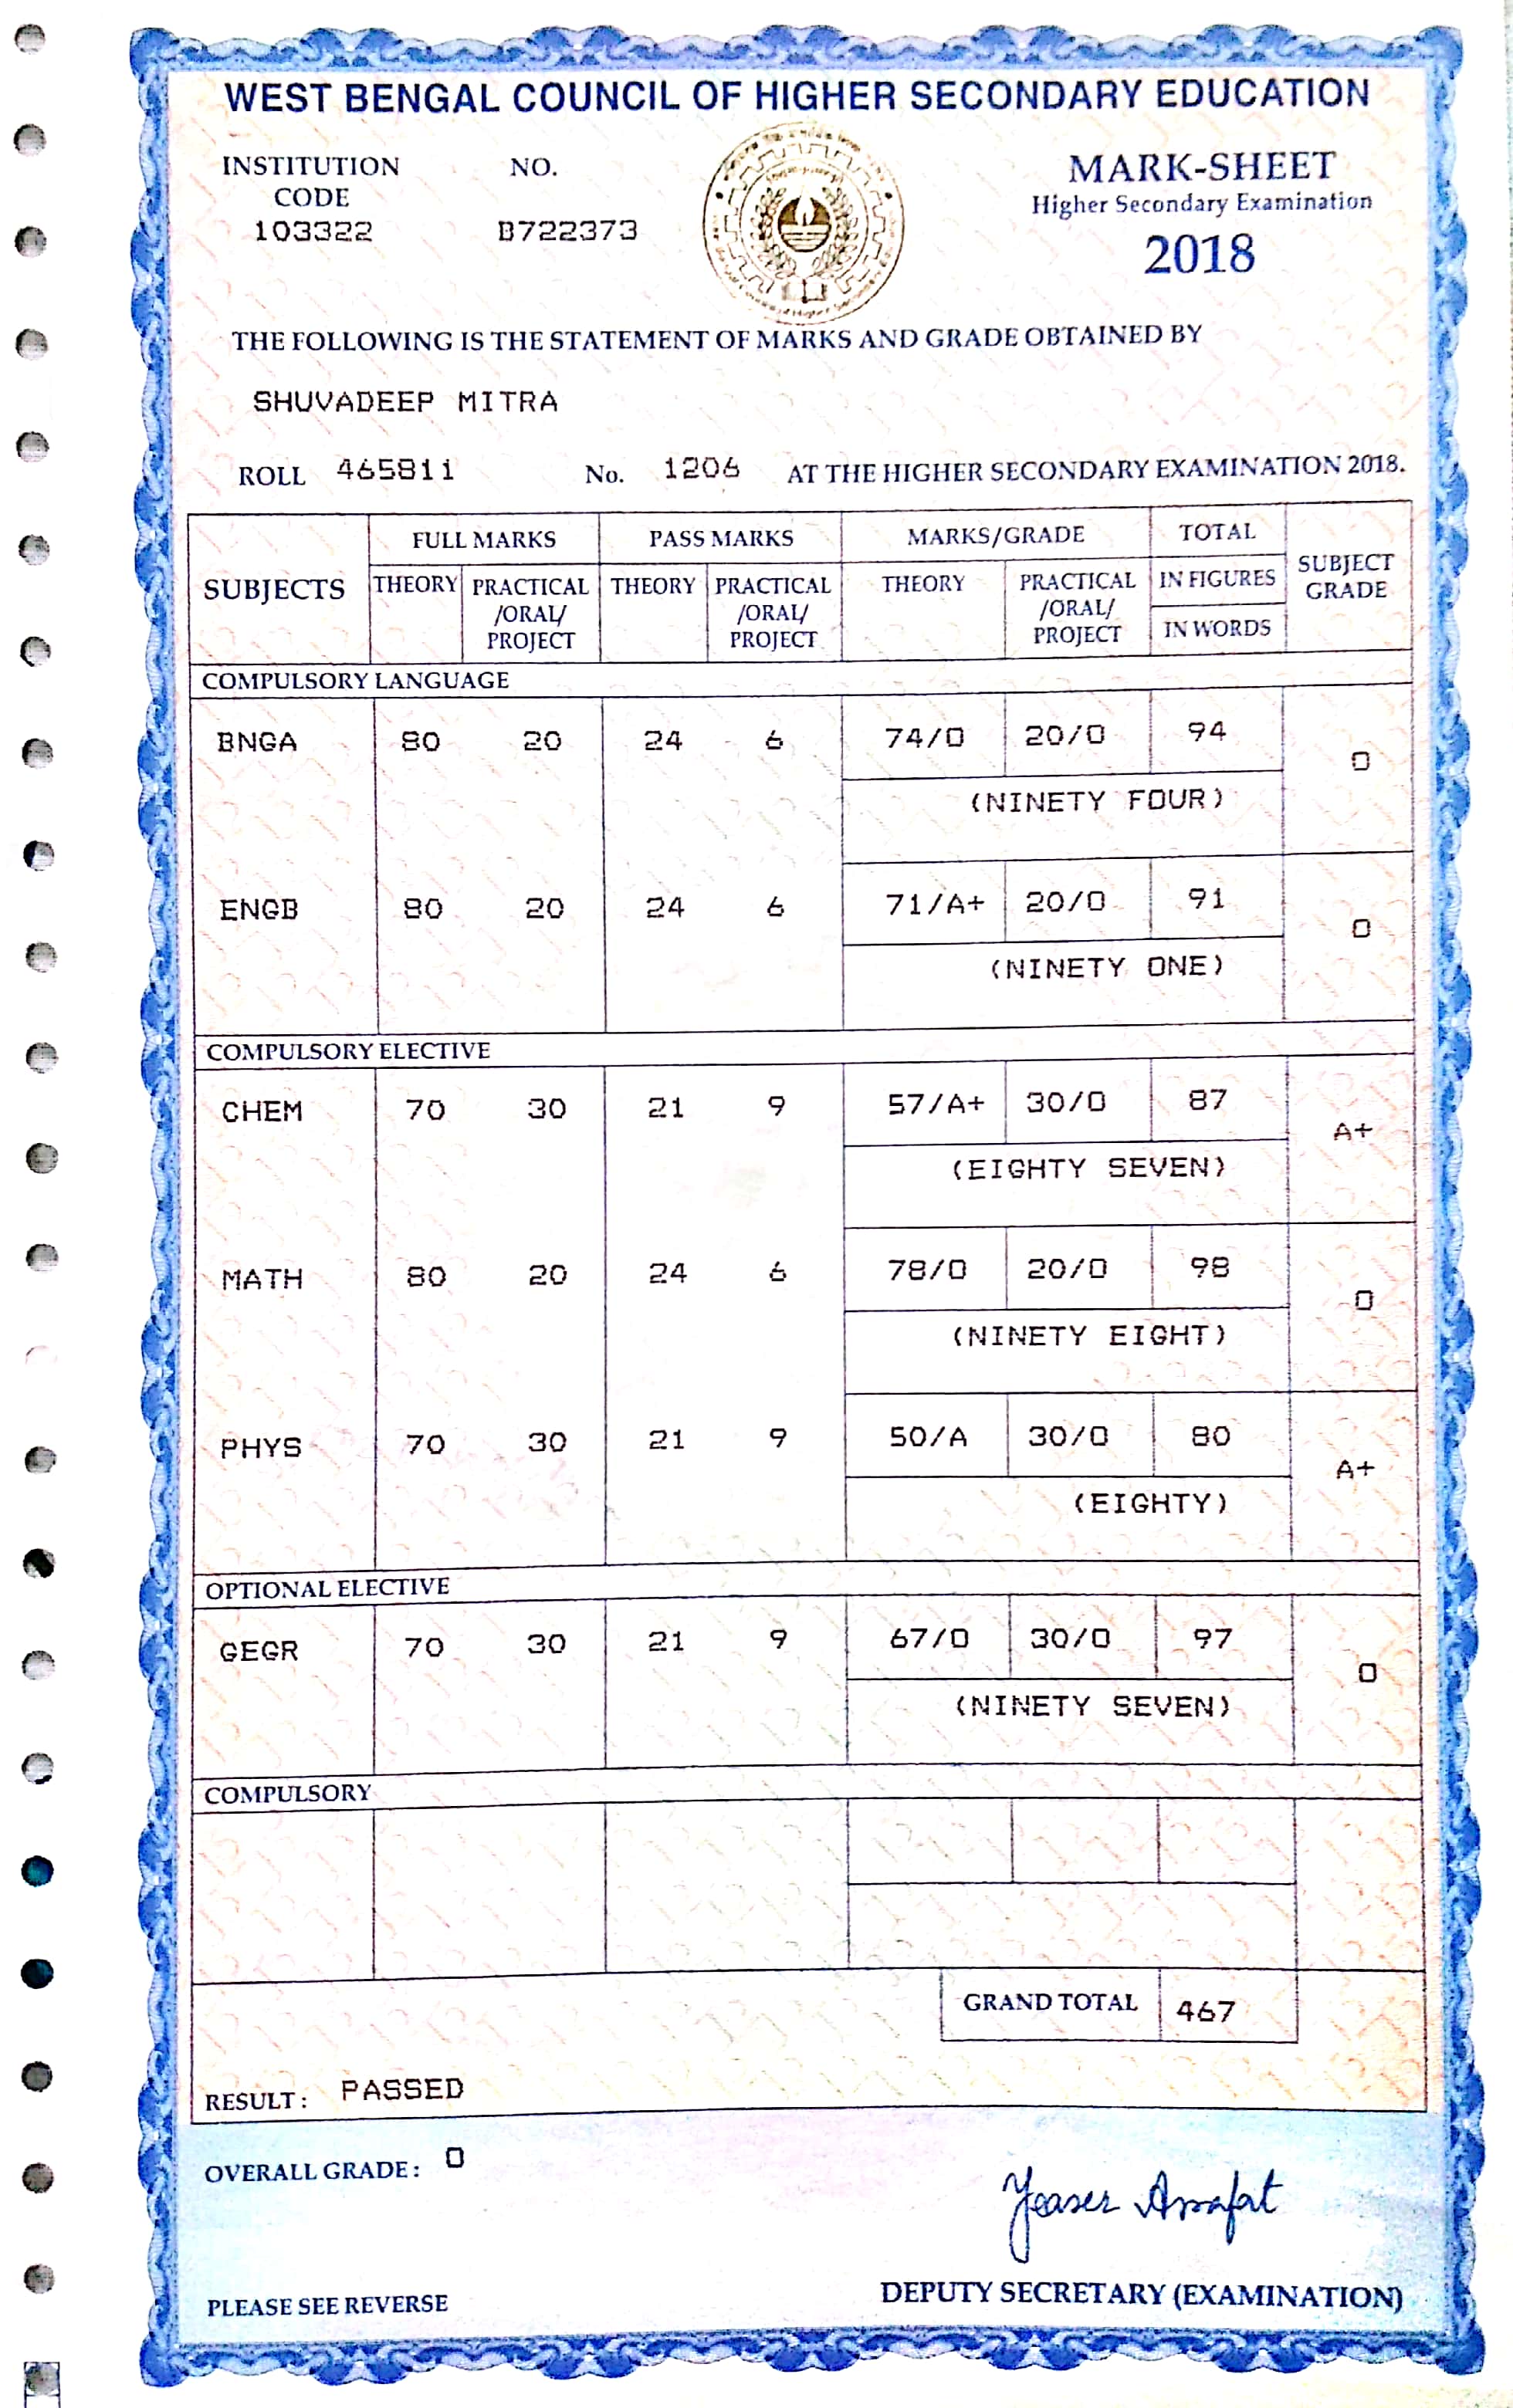 WEST BENGAL COUNCIL OF HIGHER SECONDARY EDUCATION
INSTITUTION CODE NO. MARK-SHEET
103322 B722373 Higher Secondary Examination
2018
THE FOLLOWING IS THE STATEMENT OF MARKS AND GRADE OBTAINED BY
SHUVADEEP MITRA
ROLL 465811 No. 1206 AT THE HIGHER SECONDARY EXAMINATION 2018.
SUBJECTS FULL MARKS PASS MARKS MARKS/GRADE TOTAL SUBJECT GRADE
THEORY PRACTICAL /ORAL/ PROJECT THEORY PRACTICAL /ORAL/ PROJECT THEORY PRACTICAL /ORAL/ PROJECT IN FIGURES
IN WORDS
COMPULSORY LANGUAGE
BNGA 80 20 24 6 74/O 20/O 94 O
(NINETY FOUR)
ENGB 80 20 24 6 71/A+ 20/O 91 O
(NINETY ONE)
COMPULSORY ELECTIVE
CHEM 70 30 21 9 57/A+ 30/O 87 A+
(EIGHTY SEVEN)
MATH 80 20 24 6 78/O 20/O 98 O
(NINETY EIGHT)
PHYS 70 30 21 9 50/A 30/O 80 A+
(EIGHTY)
OPTIONAL ELECTIVE
GEGR 70 30 21 9 67/O 30/O 97 O
(NINETY SEVEN)
COMPULSORY
GRAND TOTAL 467
RESULT: PASSED
OVERALL GRADE: O
Yeaser Arrafat
DEPUTY SECRETARY (EXAMINATION)
PLEASE SEE REVERSE